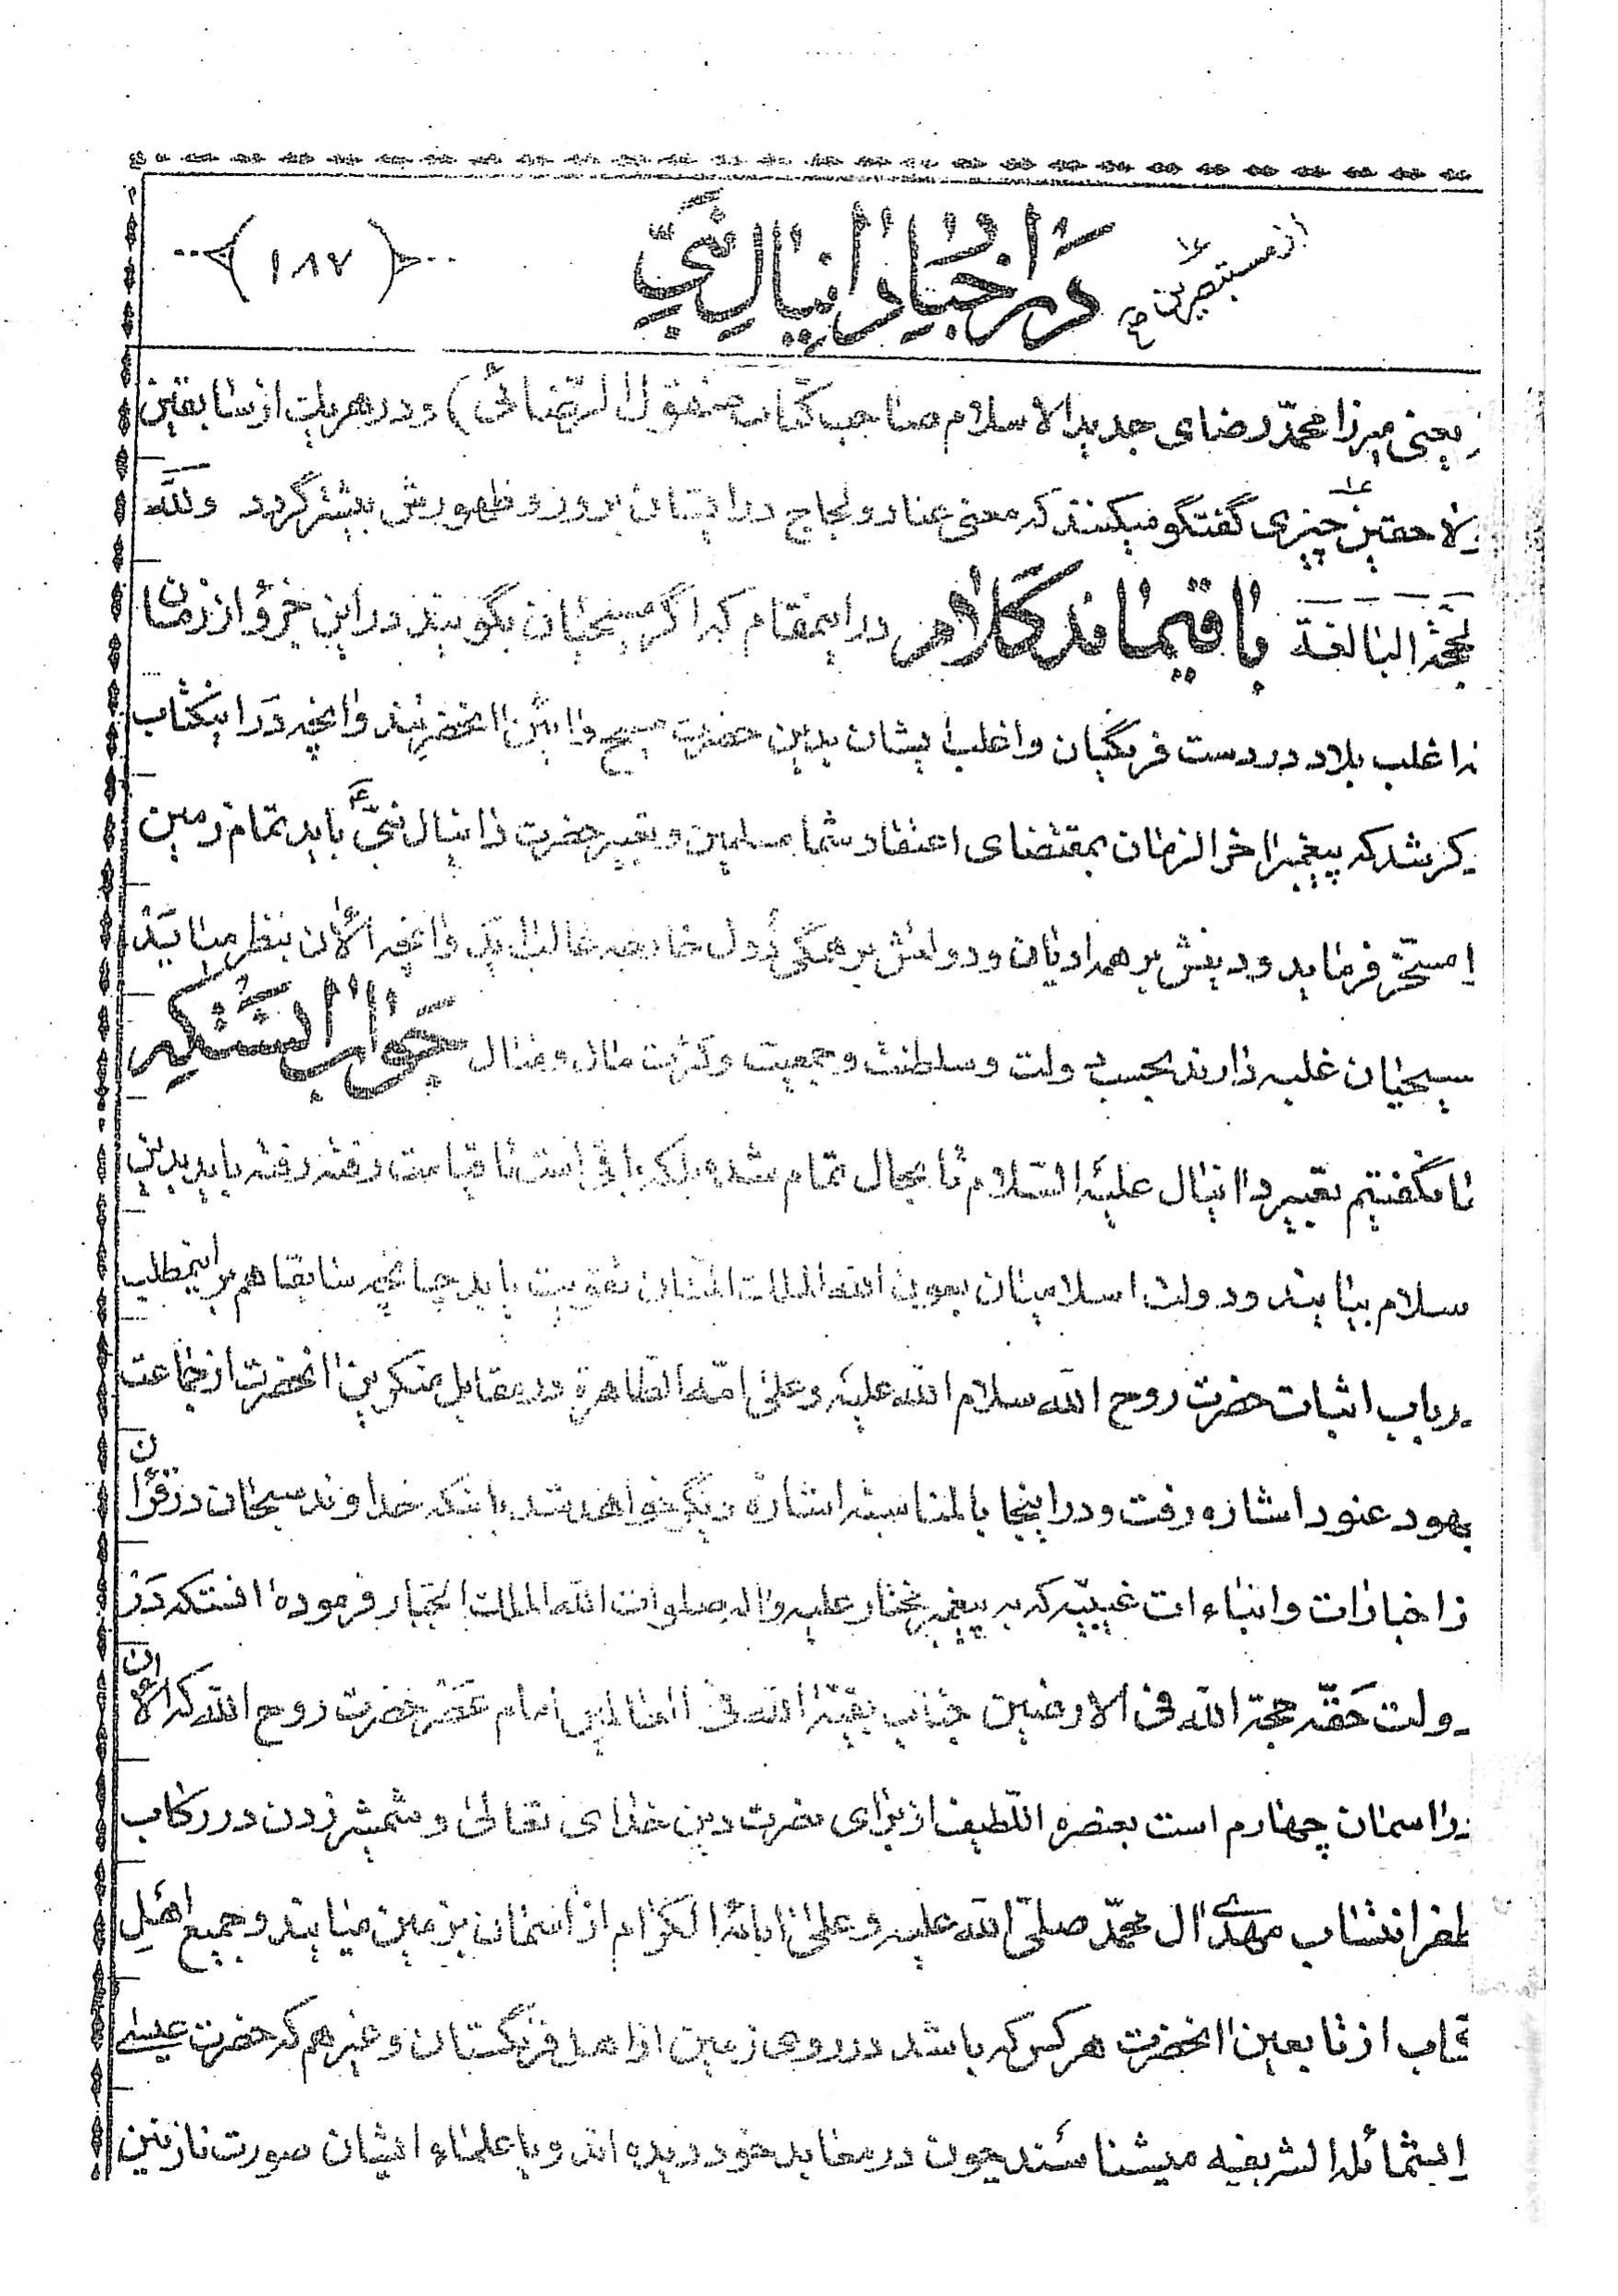 از مستبصرین در اخبار دانیال نبی (۱۸۷)
یعنی میرزا محمّد رضای جدید الاسلام صاحب کتاب منقول الرضائی) و در هر یک از سابقین
لاحقین چیزی گفتگو میکنند که معنی عناد و لجاج در ایشان بروز و ظهورش بیشتر گردد ولله
لحجّة البالغة باقیماند کلام در اینمقام که اگر مسیحیان بگویند در این جزؤ از زمان
اغلب بلاد در دست فرنگیان و اغلب ایشان بدین حضرت مسیح و این آنحضرتند و آنچه در اینکتاب
کر شد که پیغمبر اخر الزمان بمقتضای اعتقاد شما مسلمین و تعبیر حضرت دانیال نبیّ ع باید تمام زمین
ا مسخّر فرماید و دینش بر همه ادیان و دولتش بر همگی دول خارجه غالب آید و آنچه الآن بنظر میآید
سیحیان غلبه دارند بحسب دولت و سلطنت و جمعیت و کثرت مال و منال جواب انستکه
ما نگفتیم تعبیر دانیال علیه السّلام تا بحال تمام شده بلکه باقی است تا قیامت رفته رفته باید بدین
سلام بیایند و دولت اسلامیان بعون الله الملک المنّان تقویت یابد چنانچه سابقا هم بر اینمطلب
در باب اثبات حضرت روح الله سلام الله علیه و علی امّه الطّاهرة در مقابل منکرین آنحضرت از جماعت
یهود عنود اشاره رفت و در اینجا بالمناسبة اشارۀ دیگر خواهد شد باینکه خداوند سبحان در قرآن
از اخبارات و انباءات غیبیّه که به پیغمبر مختار علیه و اله صلوات الله الملک الجبّار فرموده انستکه در
دولت حقّه حجة الله فی الارضین جناب بقیّة الله فی العالمین امام عصر حضرت روح الله که الآن
در اسمان چهارم است بعنصره اللّطیف از برای نصرت دین خدای تعالی و شمشیر زدن در رکاب
ظفر انتساب مهدی ال محمّد صلّی الله علیه و علی ابائه الکرام از آسمان بزمین میایند و جمیع اهل
کتاب از تابعین آنحضرت هر کس که باشد در روی زمین از اهل فرنگستان و غیرهم که حضرت عیسی
با بشمائله الشریفه میشناسند چون در معابد خود دیده اند و با علماء ایشان صورت نازنین